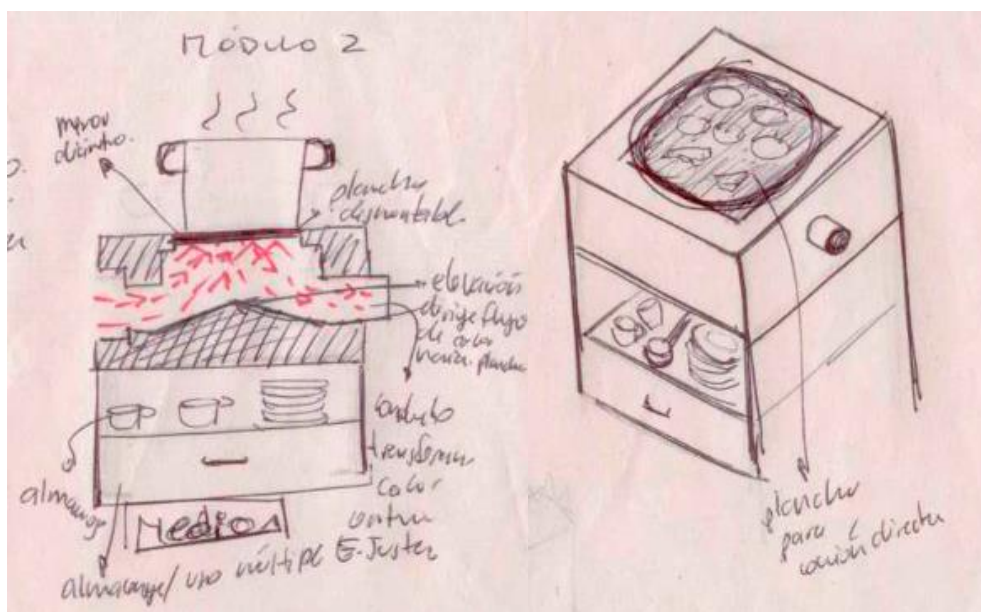 MÓDULO 2
menor
diámetro.
plancha
desmontable.
elevación
dirige flujo
de calor
hacia plancha
conducto
transferir
calor
almacenaje
MediOA
almacenaje/ uso múltiple
plancha
para
cocción directa